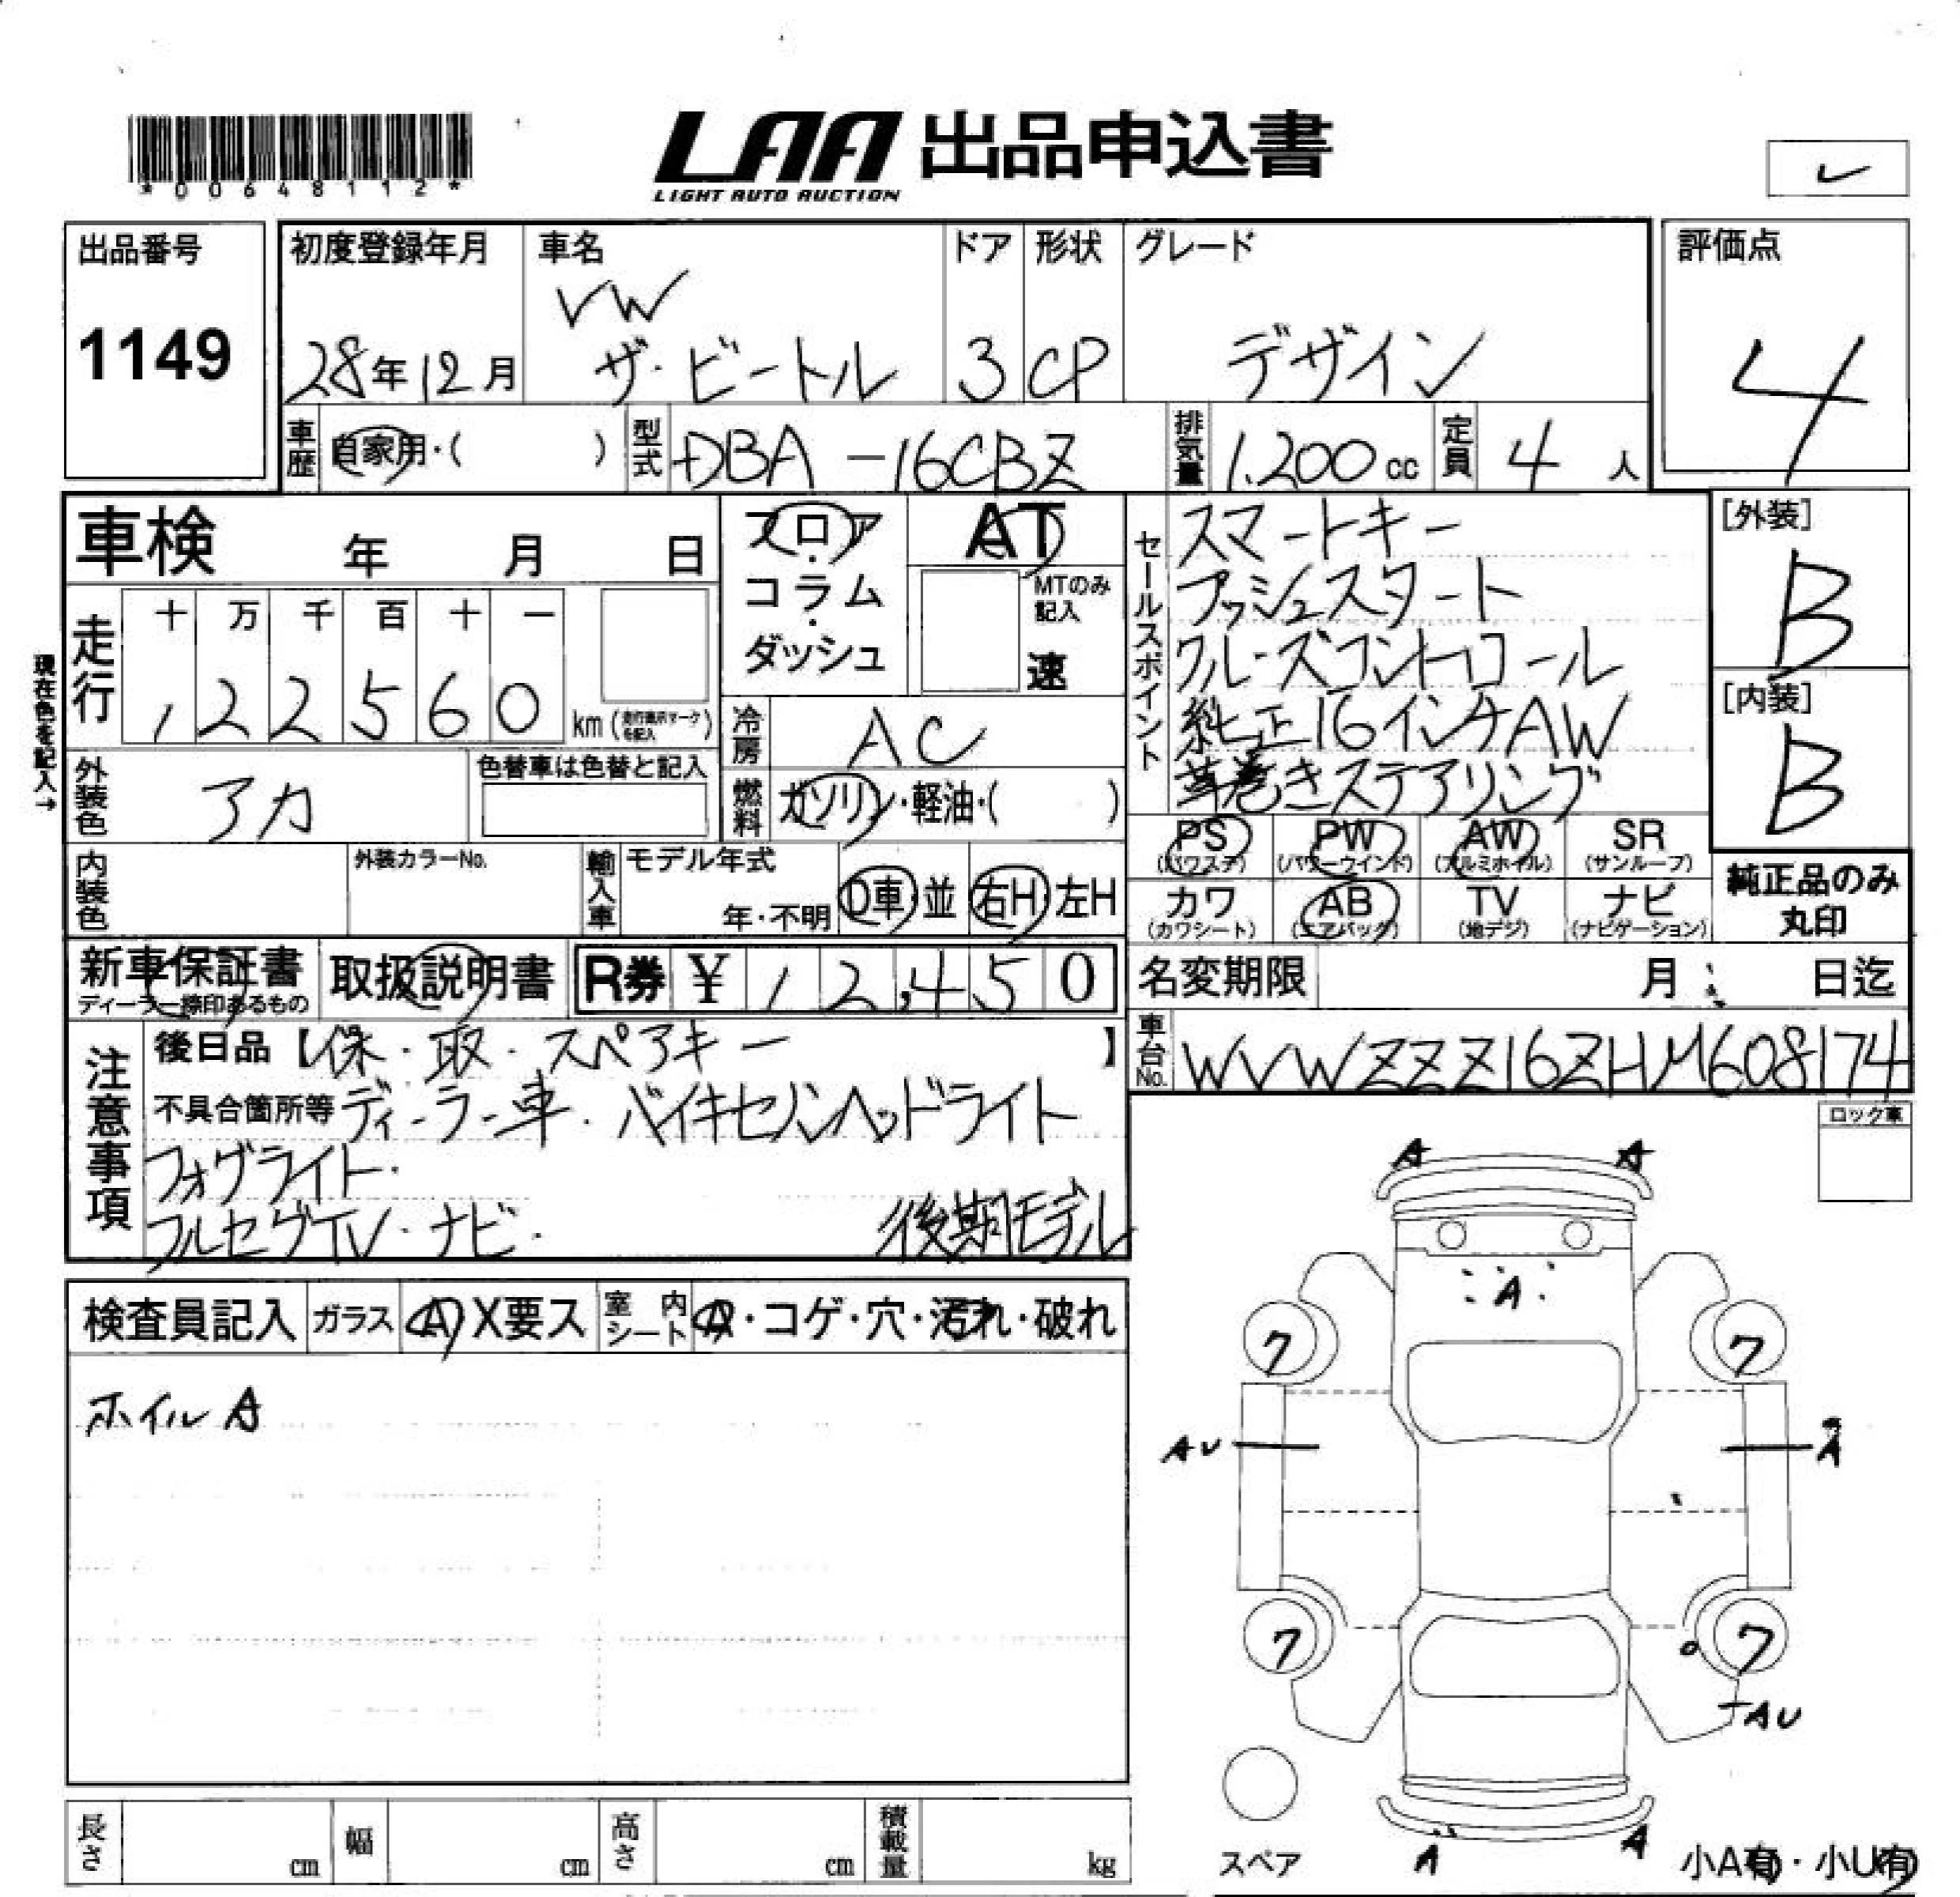 *00648112*
LAA 出品申込書
LIGHT AUTO AUCTION
レ
出品番号
1149
初度登録年月
28年12月
車名
VW
ザ・ビートル
ドア
3
形状
CP
グレード
デザイン
評価点
4
車歴
自家用・( )
型式
DBA-16CBZ
排気量
1.200cc
定員
4人
車検 年 月 日
フロア・コラム・ダッシュ
AT
MTのみ記入
速
走行
十 万 千 百 十 一
, 2 2 5 6 0 km (走行表示マークを記入)
現在色を記入→
外装色
アカ
色替車は色替と記入
冷房
AC
燃料
ガソリン・軽油・( )
内装色
外装カラーNo.
輸入車
モデル年式
年・不明
D車・並
右H・左H
セールスポイント
スマートキー
プッシュスタート
クルーズコントロール
純正16インチAW
革巻きステアリング
[外装]
B
[内装]
B
PS (パワステ)
PW (パワーウインド)
AW (アルミホイル)
SR (サンルーフ)
カワ (カワシート)
AB (エアバック)
TV (地デジ)
ナビ (ナビゲーション)
純正品のみ丸印
新車保証書
ディーラー捺印あるもの
取扱説明書
R券 ¥ 12,450
名変期限 月 日迄
車台No.
WVWZZZ16ZHM608174
注意事項
後日品【保・取・スペアキー】
不具合箇所等 ディーラー車・バイキセノンヘッドライト
フォグライト・
フルセグTV・ナビ・
後期モデル
ロック車
検査員記入
ガラス
A X要ス
室内シート
A・コゲ・穴・汚れ・破れ
ホイル A
A A
A
7 7
AU A
7 7
AU
A A
スペア
小A有・小U有
長さ cm
幅 cm
高さ cm
積載量 kg